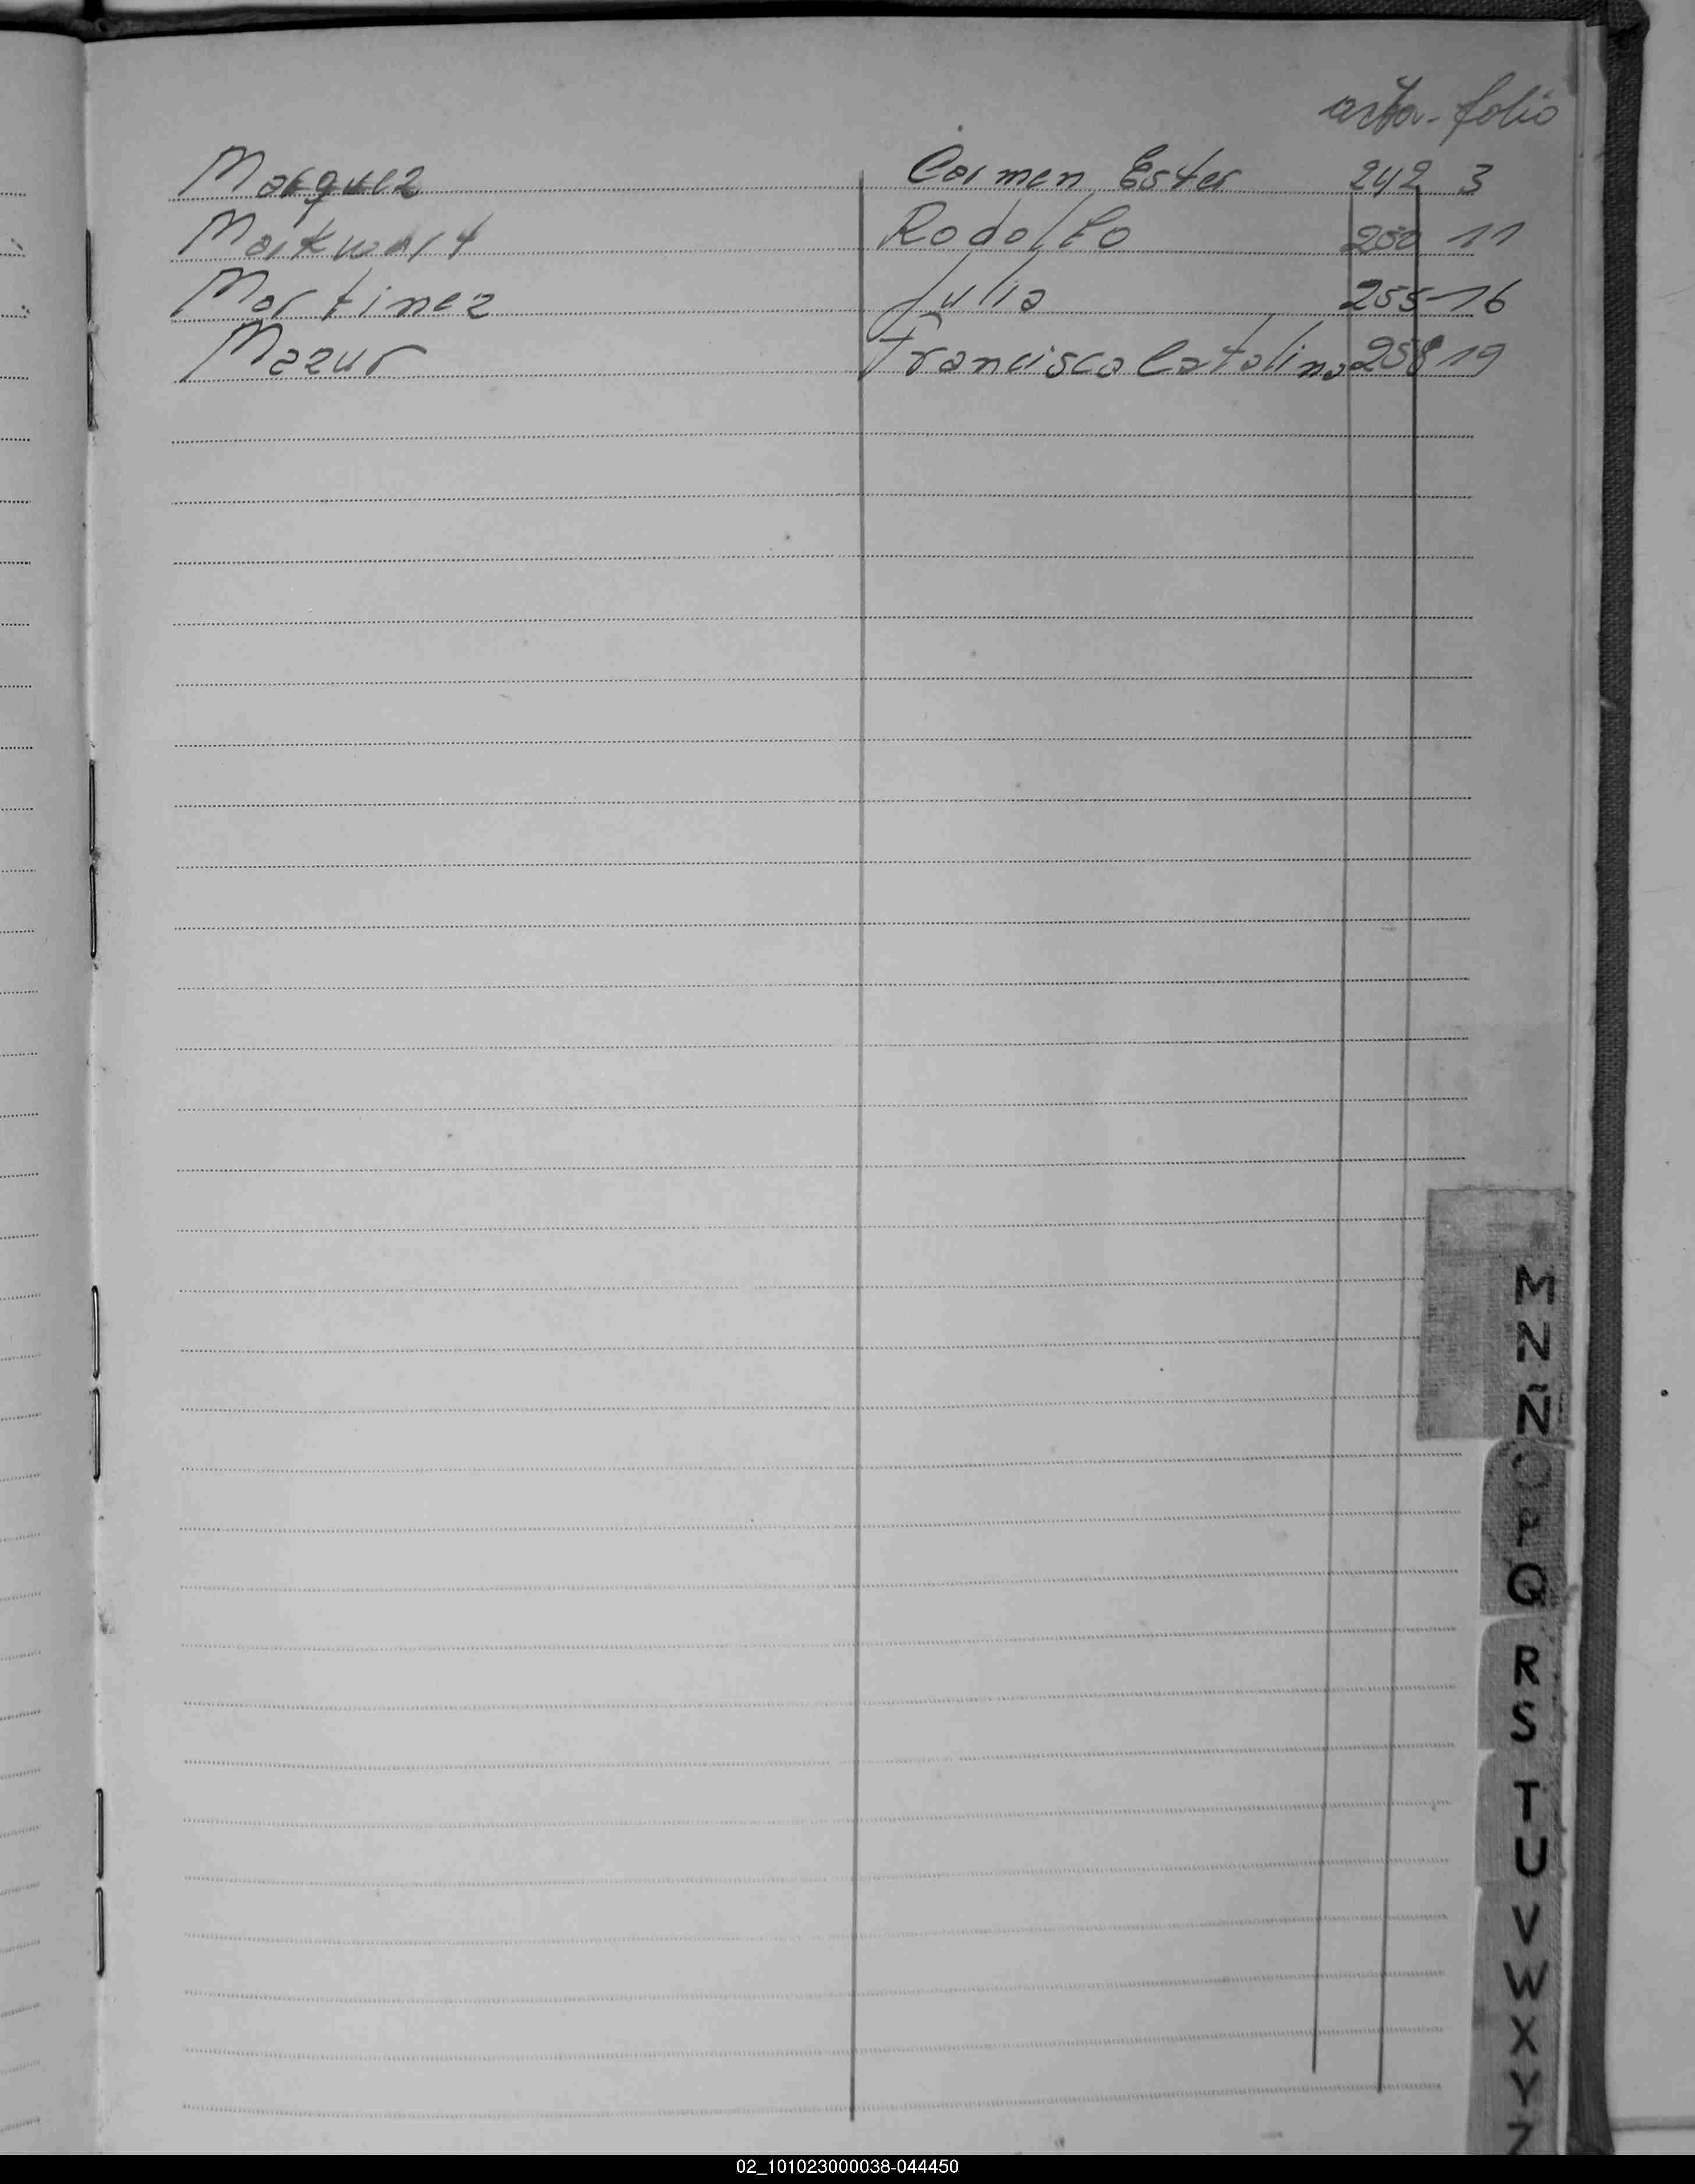 acta - folio
Marquez Carmen Ester 242 3
Markwart Rodolfo 250 11
Martinez Julia 255 16
Mazur Francisca Catalina 258 19
M
N
Ñ
O
P
Q
R
S
T
U
V
W
X
Y
Z
02_101023000038-044450